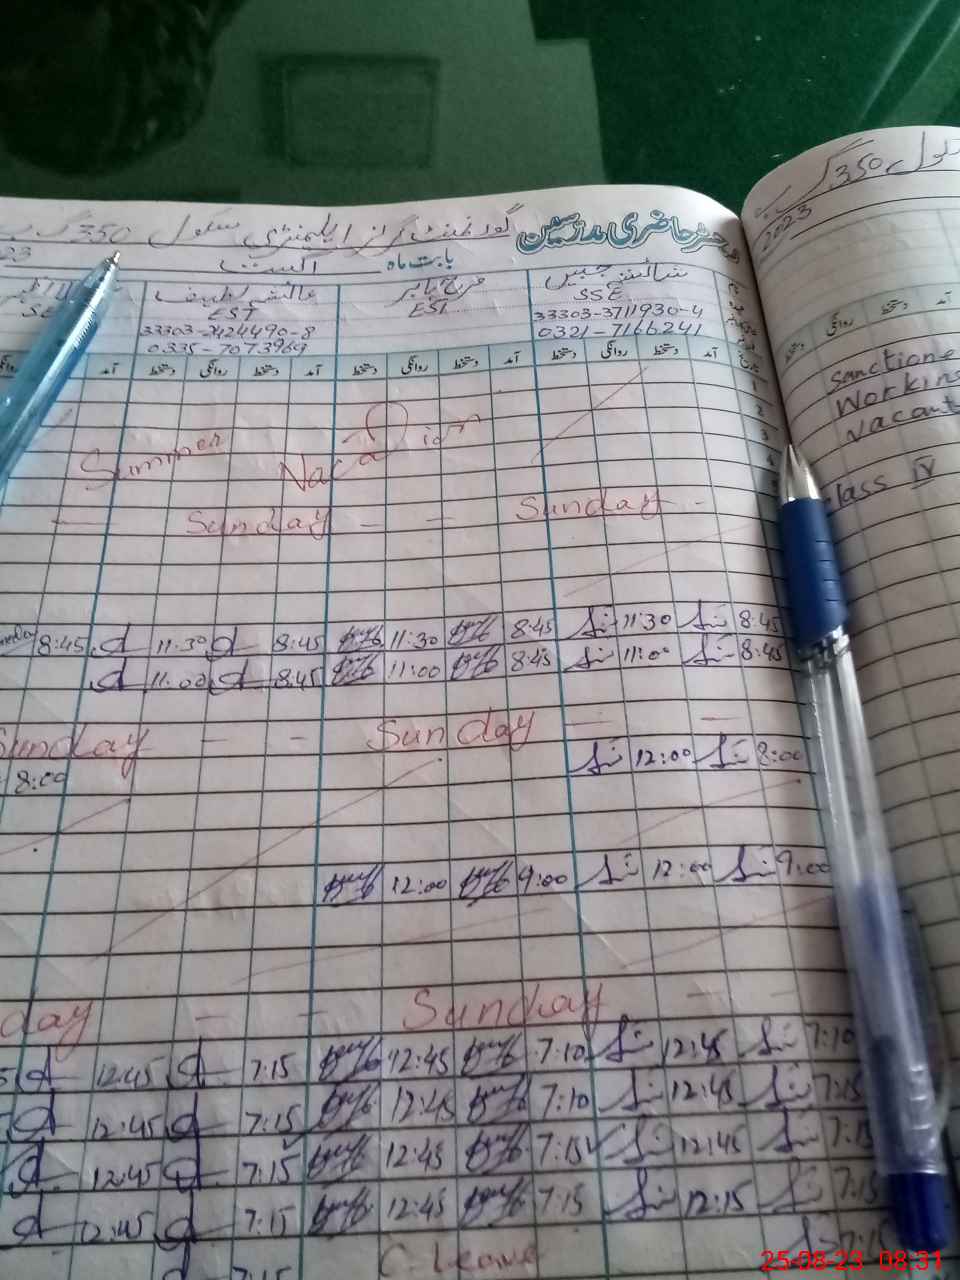 گورنمنٹ گرلز ایلیمنٹری سکول 350 گ ب
رجسٹر حاضری مدرسین
بابت ماہ اگست
23
شائستہ جبیں
SSE
33303-3711930-4
0321-7166241
EST
عائشہ لطیف
EST
33303-2424490-8
0335-7073969
SE
تاریخ آمد دستخط روانگی دستخط آمد دستخط روانگی دستخط آمد دستخط روانگی دستخط آمد
1
2
3
Summer Vacation
Sunday Sunday
8:45 11:30 8:45 11:30 8:45 11:30 8:45
11:00 8:45 11:00 8:45 11:00 8:45
Sunday Sunday
8:00 12:00 8:00
12:00 9:00 12:00 9:00
day Sunday
12:45 7:15 12:45 7:10 12:45 7:10
12:45 7:15 12:45 7:10 12:45 7:15
12:45 7:15 12:45 7:15 12:45 7:15
12:45 7:15 12:45 7:15 12:15 7:15
7:15 C-Leave 7:15
سکول 350 گ ب
2023
آمد دستخط روانگی دستخط
Sanctione
Working
Vacant
Class IV
25-08-23 08:31